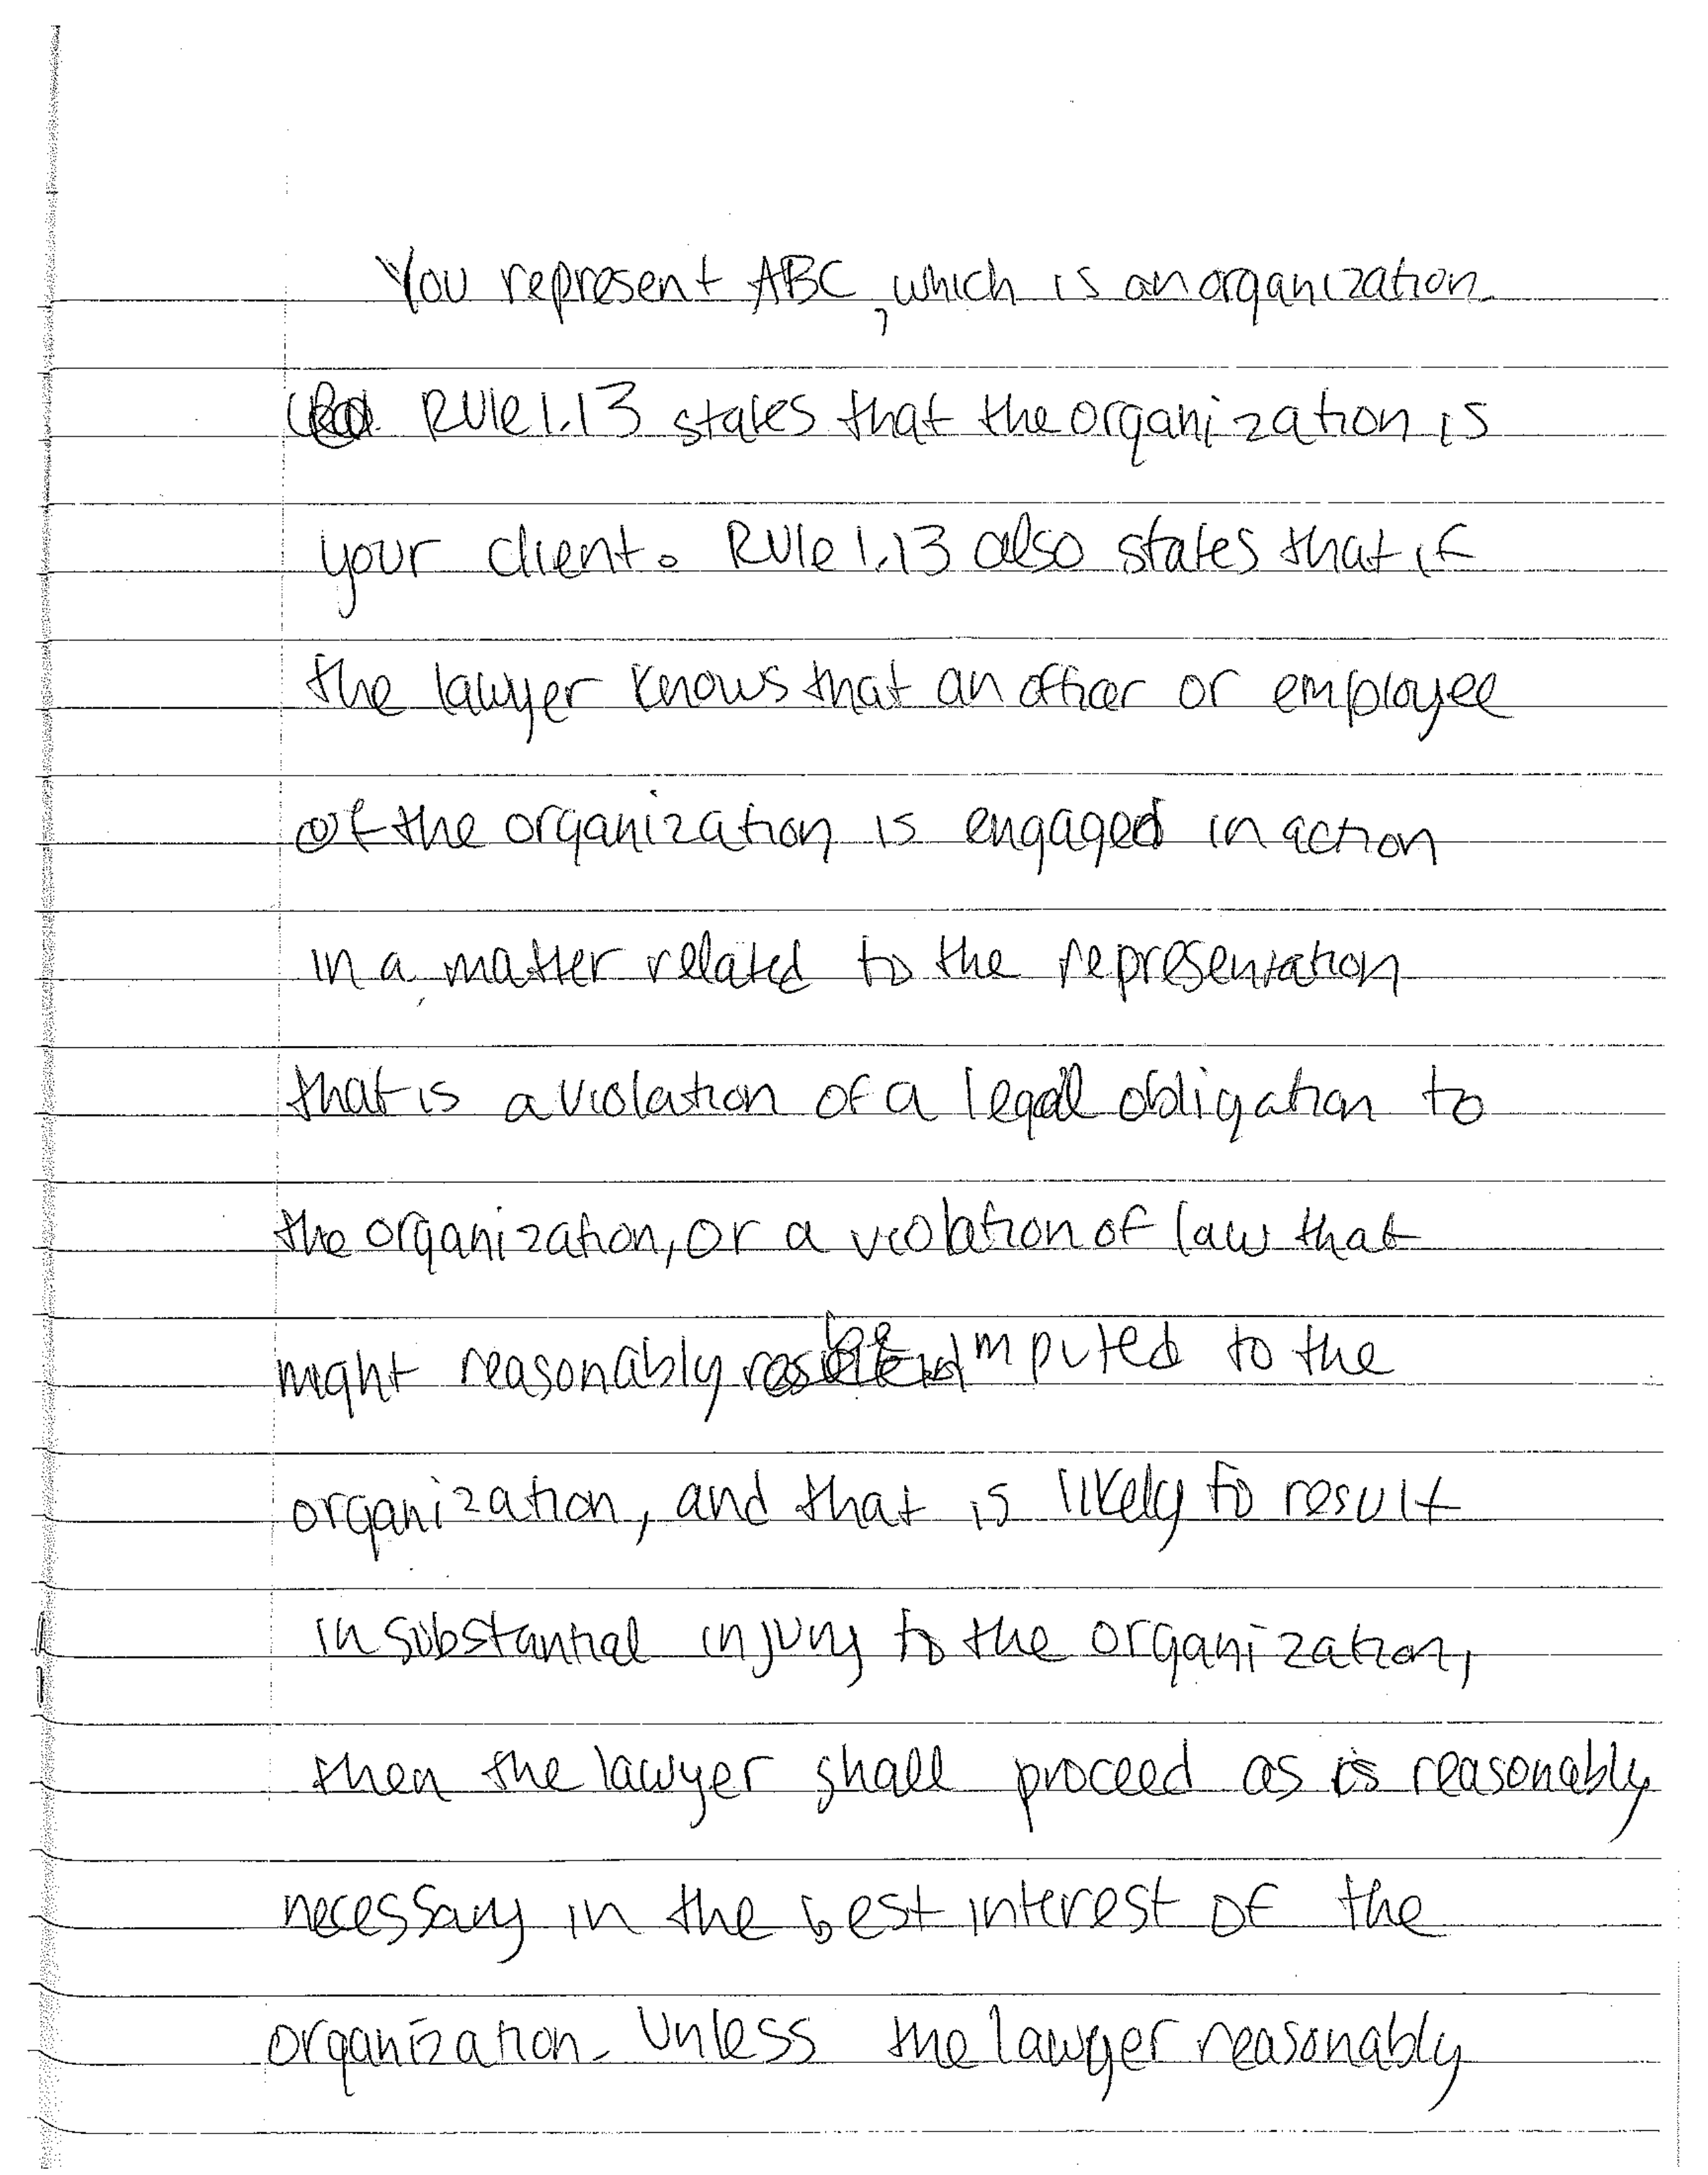 You represent ABC, which is an organization.
Rule 1.13 states that the organization is
your client. Rule 1.13 also states that if
the lawyer knows that an officer or employee
of the organization is engaged in action
in a matter related to the representation
that is a violation of a legal obligation to
the organization, or a violation of law that
might reasonably be imputed to the
organization, and that is likely to result
in substantial injury to the organization,
then the lawyer shall proceed as is reasonably
necessary in the best interest of the
organization. Unless the lawyer reasonably